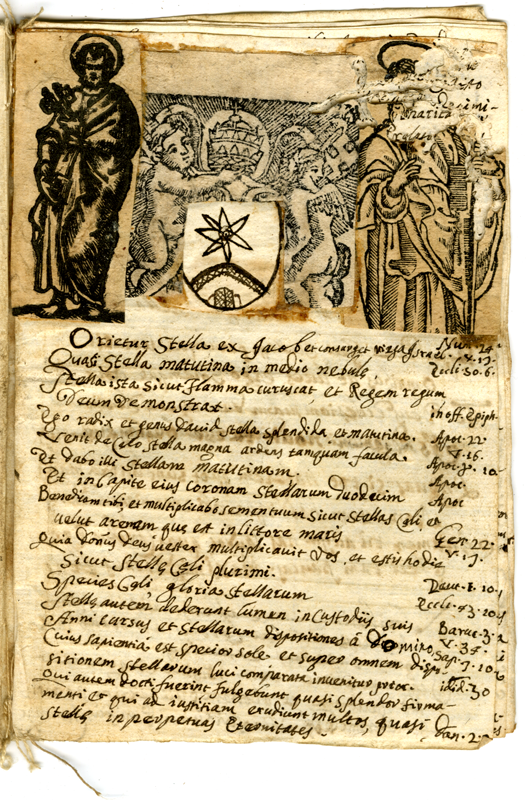 Orietur Stella ex Jacob et consurget virga Israel. Nu. 24. v. 17.
Quasi Stella matutina in medio nebulę Eccli. 50. 6.
Stella ista sicut flamma coruscat, et Regem regum
Deum demonstrat. in off. Epiph.
Ego radix et genus david stella splendida et matutina. Apoc. 22. v. 16.
Venit de Celo stella magna ardens tamquam facula. Apoc. 8. 10
Et dabo illi stellam matutinam. Apoc.
Et in Capite eius coronam stellarum duodecim Apoc
Benedicam tibi et multiplicabo semen tuum sicut stellas Celi et
velut arenam que est in littore maris Gen 22. v. 17.
Quia donus deus vester multiplicavit vos, et estis hodie
sicut stellę Cęli plurimi. Deut. 1. 10
Species Cęli gloria stellarum Eccli. 43. 10
Stellę autem dederunt lumen in Custodijs suis Baruc. 3. v. 34.
Anni cursus et stellarum dispositiones à domino, Sap. 7.
Cuius sapientia est specior sole et super omnem dispo-
sitionem stellarum luci comparata invenitur prior. ibid. 30
Qui autem docti fuerint fulgebunt quasi splendor firma-
menti et qui ad iustitiam erudiunt multos, quasi
stellę in perpetuas Eternitates. Dan. 2.